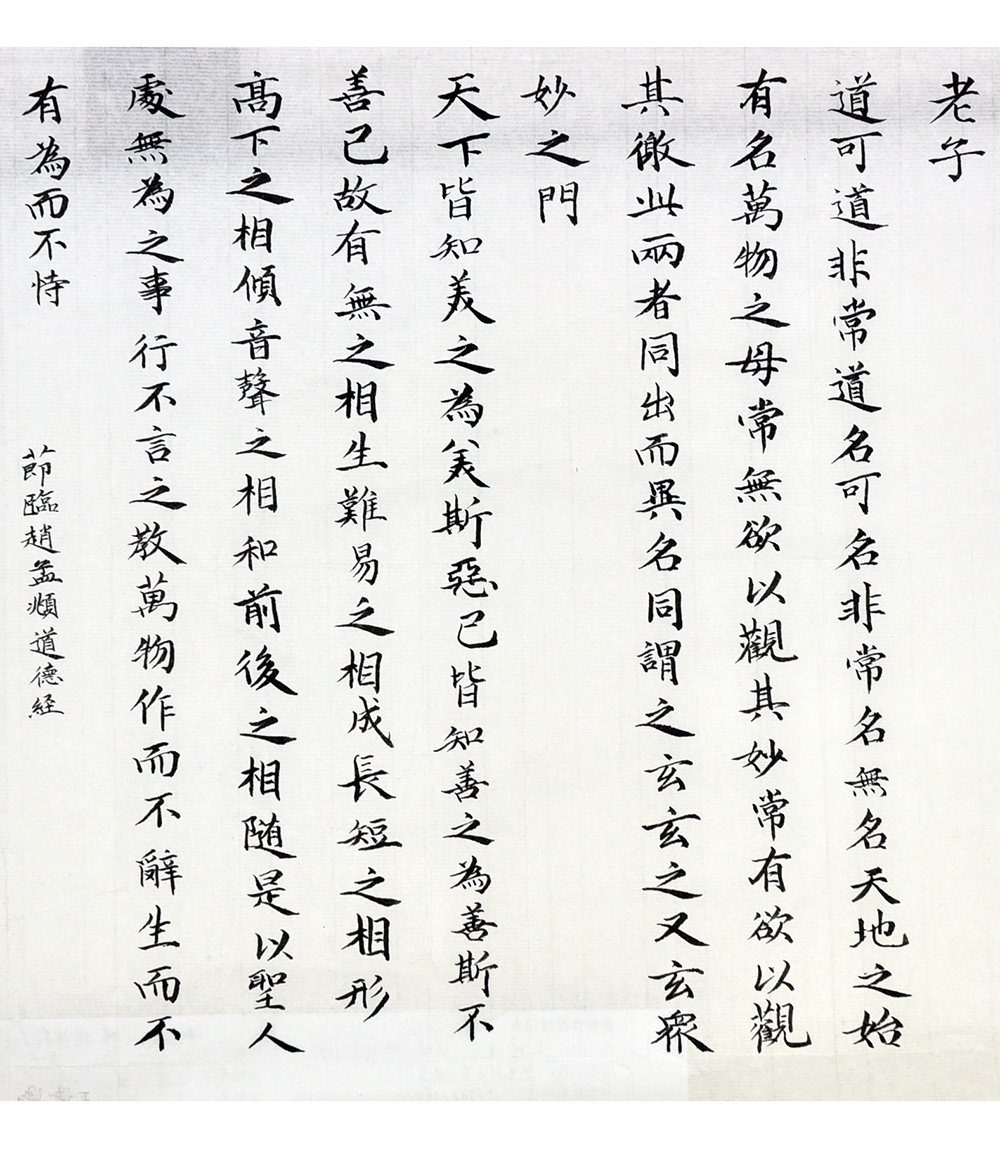 老子
道可道非常道名可名非常名無名天地之始
有名萬物之母常無欲以觀其妙常有欲以觀
其徼此兩者同出而異名同謂之玄玄之又玄衆
妙之門
天下皆知美之為美斯惡已皆知善之為善斯不
善已故有無之相生難易之相成長短之相形
高下之相傾音聲之相和前後之相随是以聖人
處無為之事行不言之教萬物作而不辭生而不
有為而不恃
節臨趙孟頫道德経